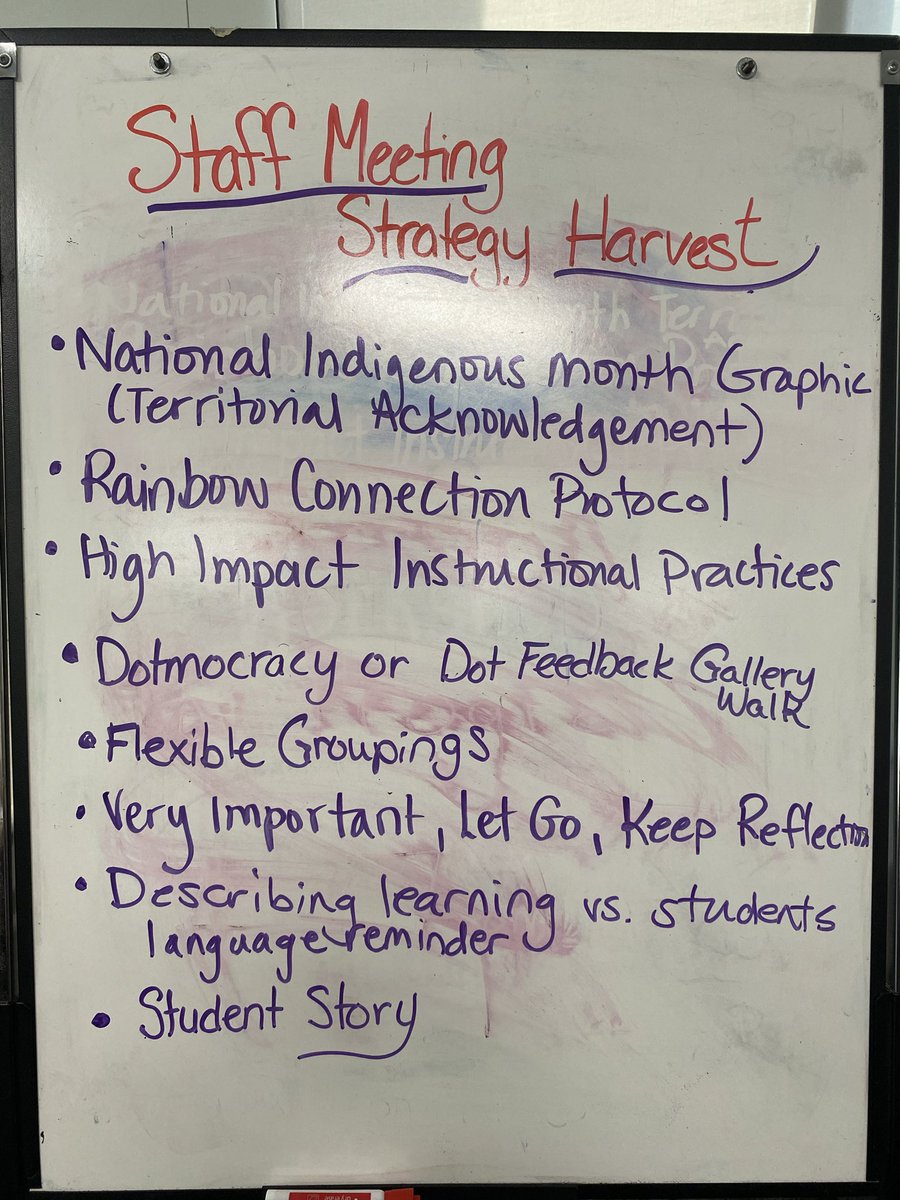 Staff Meeting
Strategy Harvest
• National Indigenous month Graphic
(Territorial Acknowledgement)
• Rainbow Connection Protocol
• High Impact Instructional Practices
• Dotmocracy or Dot Feedback Gallery
Walk
• Flexible Groupings
• Very Important, Let Go, Keep Reflection
• Describing learning vs. students
language reminder
• Student Story